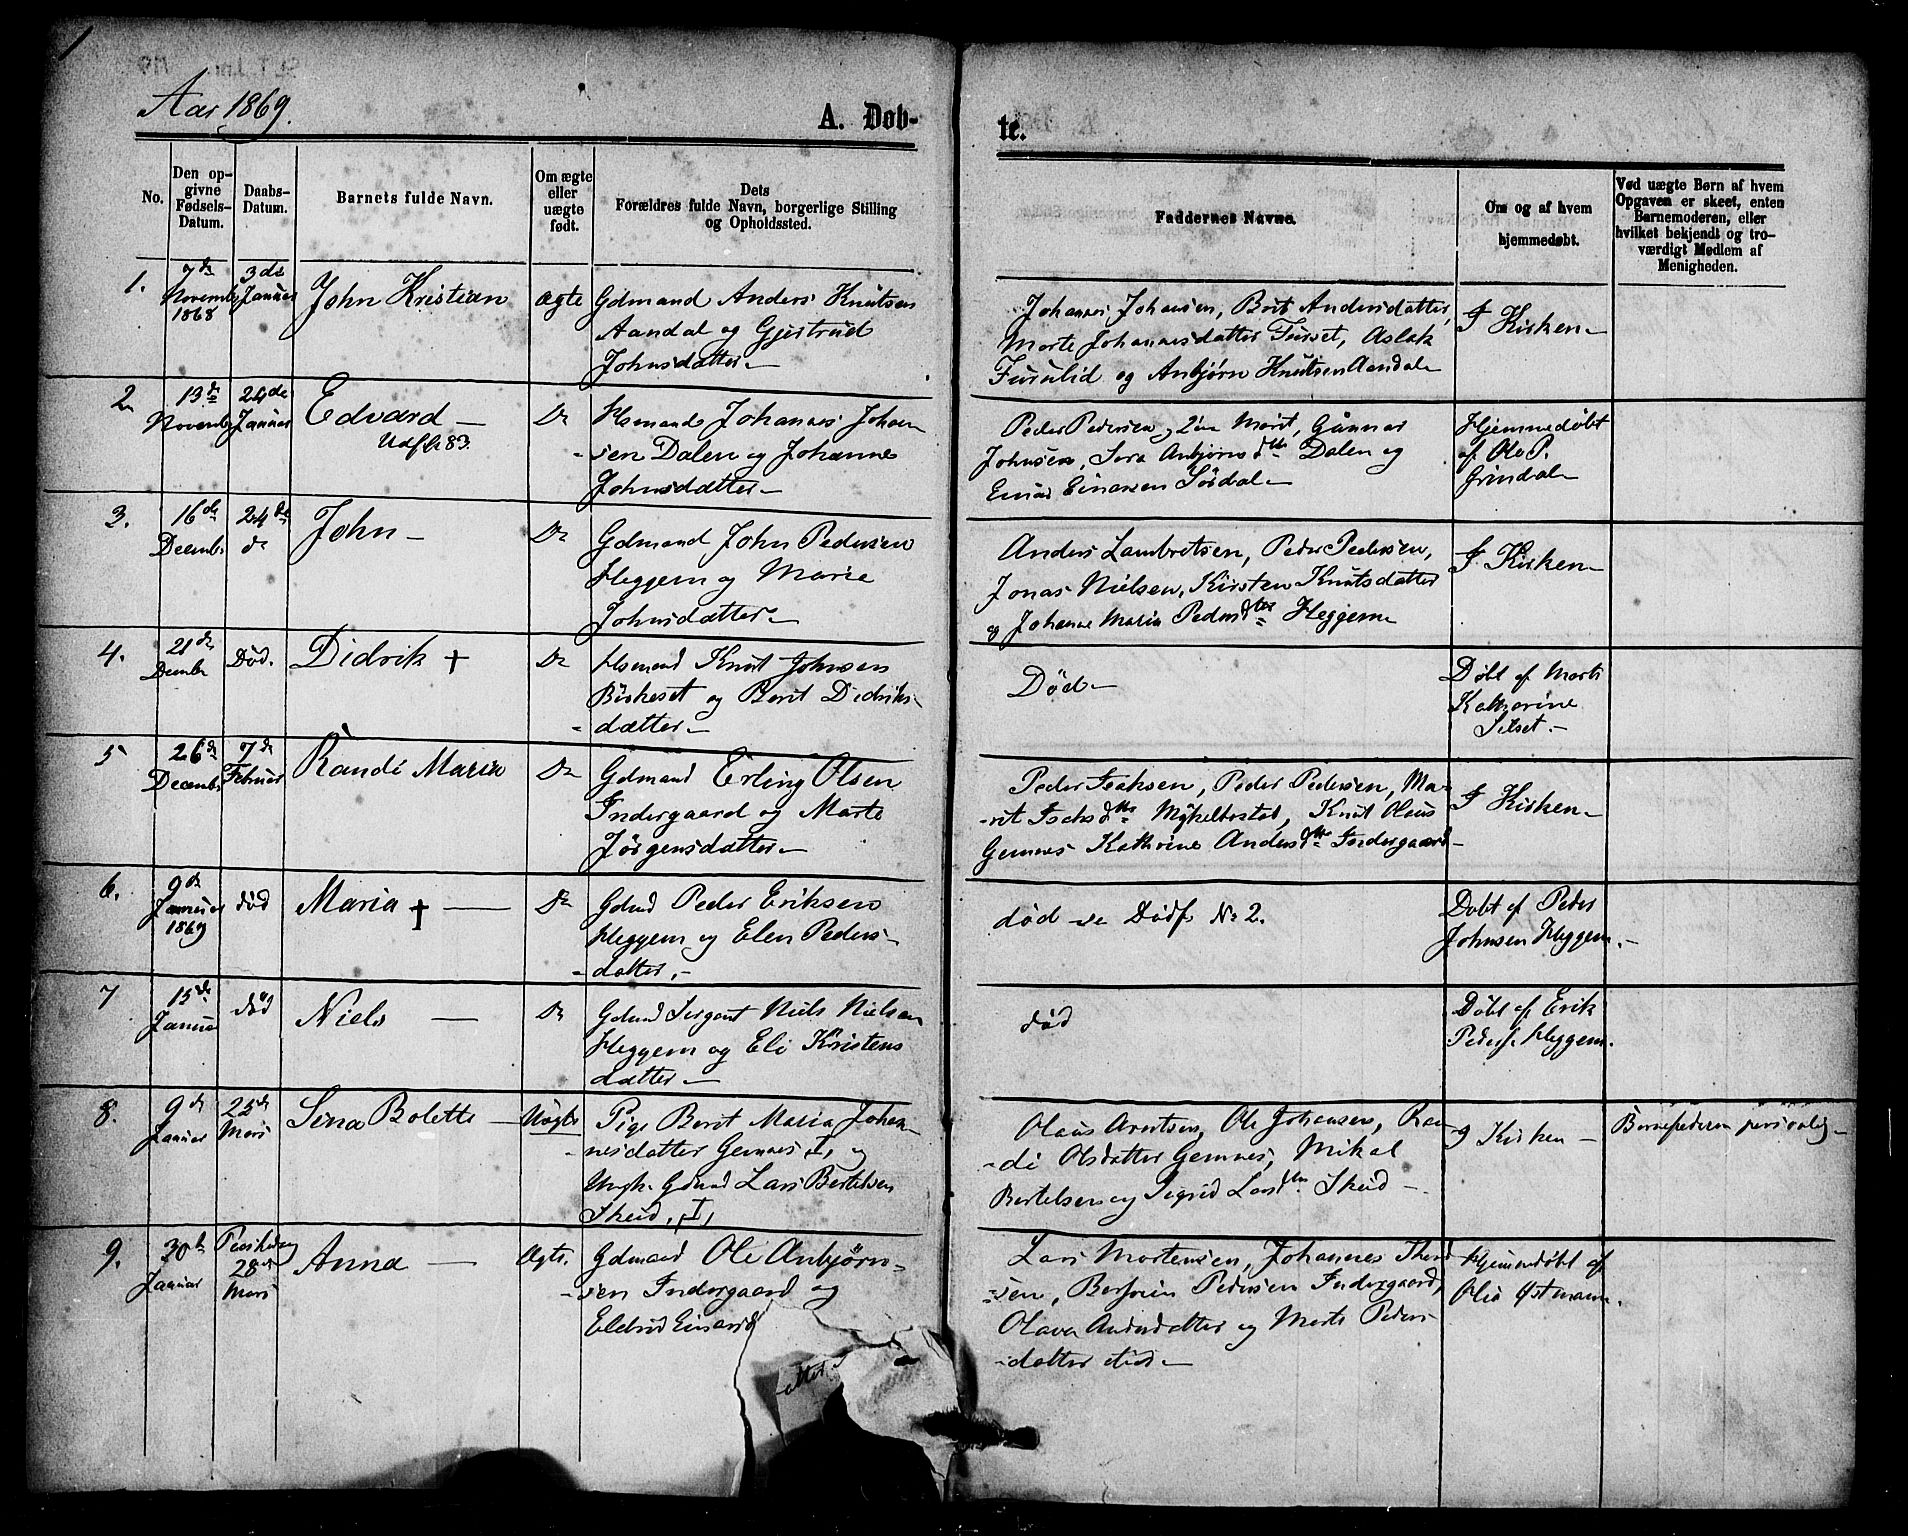 1
Aar 1869.
A. Døb-
te.
No.
Den op-
givne
Fødsels-
Datum.
Daabs-
Datum.
Barnets fulde Navn.
Om ægte
eller
uægte
født.
Dets
Forældres fulde Navn, borgerlige Stilling
og Opholdssted.
Faddernes Navne.
Om og af hvem
hjemmedøbt.
Ved uægte Børn af hvem
Opgaven er skeet, enten
Barnemoderen, eller
hvilket bekjendt og tro-
værdigt Medlem af
Menigheden.
1.
7de
Novemb
1868
3de
Januar
John Kristian
Ægte
Gdmand Anders Knutsen
Aandal og Gjertrud
Johnsdatter
Johannes Johansen, Brit Andersdatter,
Marte Johannesdatter Furset, Aslak
Furulid og Anbjørn Knutsen Aandal
I Kirken
2
13de
Novemb
24de
Januar
Edvard
Udfl. 83.
Do
Hsmand Johannes Johan-
sen Dalen og Johanne
Johnsdatter
Peder Pedersen, Marit, Gunnar
Johnsen, Sara Anbjørnsdtr Dalen og
Einar Einarsen Sørdal
Hjemmedøbt
af Ole P.
Grindal
3.
16de
Decemb
24de
do
John
Do
Gdmand John Pedersen
Heggem og Marie
Johnsdatter
Anders Lambretsen, Peder Pedersen,
Jonas Nielsen, Kirsten Knutsdatter
og Johanne Maria Pedersdtr Heggem
I Kirken
4.
21de
Decemb
Død.
Didrik +
Do
Hsmand Knut Johnsen
Birkeset og Berit Didriks-
datter
Død
Døbt af Marte
Katharine
Silset
5
26de
Decemb
7de
Februar
Randi Maria
Do
Gdmand Erling Olsen
Indergaard og Marte
Jørgensdatter
Peder Isaksen, Peder Pedersen, Ma-
rit Isaksdtr Myklebostad, Knut Olaus
Gemnes Kathrine Andersdtr Indergaard
I Kirken
6.
9de
Januar
1869
død
Maria +
Do
Gdmd Peder Eriksen
Heggem og Elen Peders-
datter,
død se Dødf. No 2.
Døbt af Peder
Johnsen Heggem.
7
15de
Januar
død
Niels
Do
Gdmd Sergant Niels Nielsen
Heggem og Eli Kristens
datter
død
Døbt af Erik
Peders. Heggem.
8.
9de
Januar
25de
Mars
Sina Bolette
Uægte
Pige Berit Maria Johan-
nesdatter Gemnes, I, og
Ungk. Gdmd Lars Bertelsen
Skeid, I,
Olaus Arentsen, Ole Johansen, Ran-
di Olsdatter Gemnes, Mikal
Bertelsen og Sigrid Larsdtr Skeid
I Kirken
Barnefaderen personlig
9.
30te
Januar
Paaskedag
28de
Mars
Anna
Ægte.
Gdmand Ole Anbjørn-
sen Indergaard og
Eldrid Einarsd
atter
Lars Mortensen, Johannes
sen, Pedersen Indergaard,
Olava Andersdatter og Marte Peders-
datter
Hjemmedøbt af
Olia Østmann.